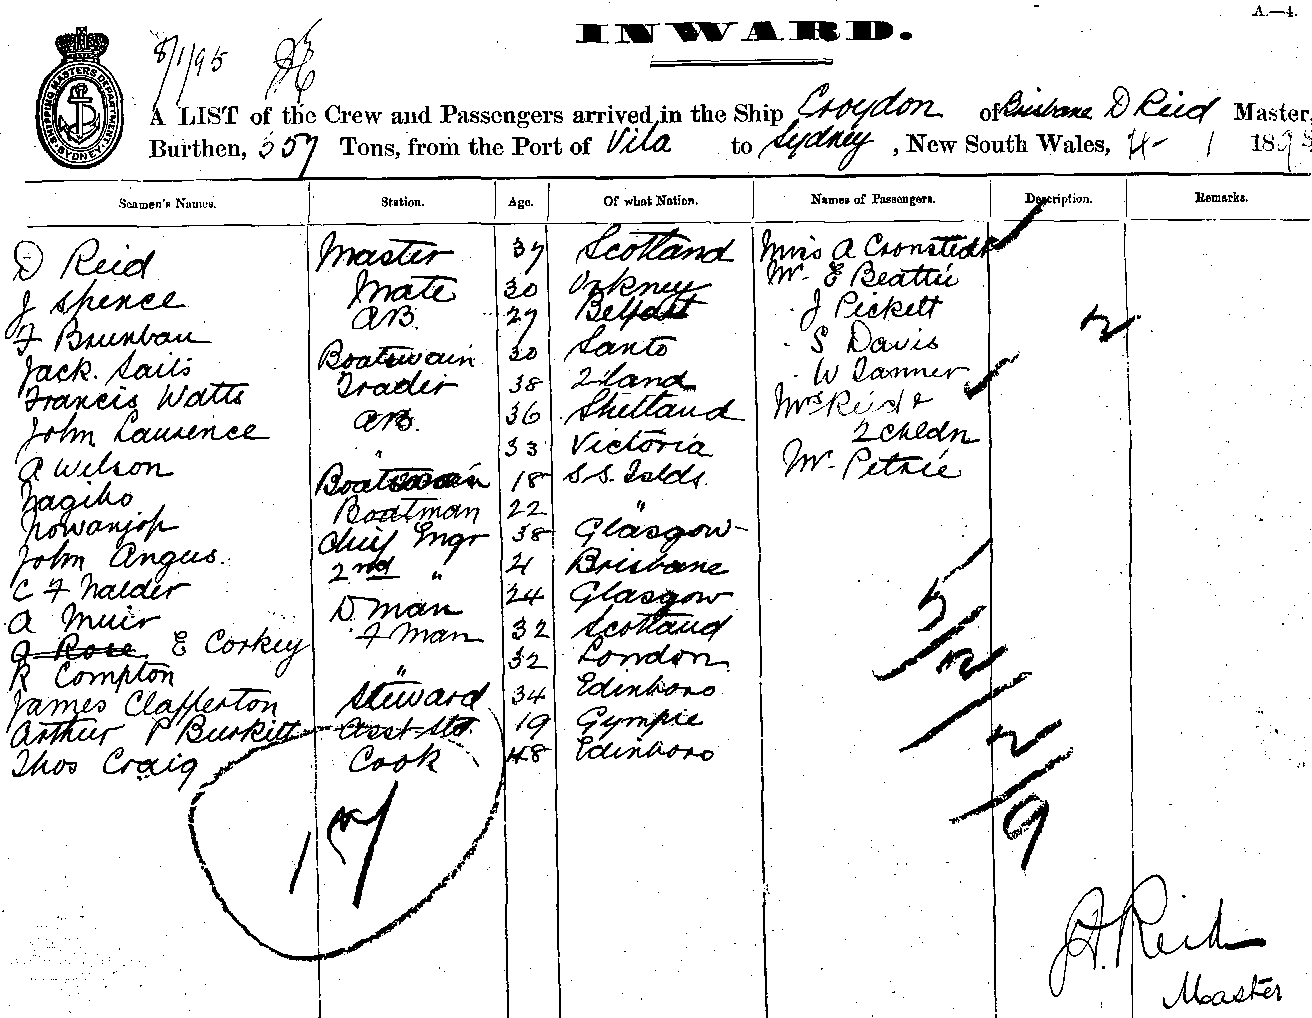 A.—4.
INWARD.
8/1/95
SHIPPING MASTERS DEPARTMENT SYDNEY
A LIST of the Crew and Passengers arrived in the Ship Croydon of Brisbane D Reid Master,
Burthen, 557 Tons, from the Port of Vila to Sydney, New South Wales, 4- 1 189
Seamen's Names. Station. Age. Of what Nation. Names of Passengers. Description. Remarks.
D Reid Master 37 Scotland Miss A Cronstedt
J Spence Mate 30 Orkney Mr. E Beattie
F AB. 27 Belfast J Pickett
Jack. Sails Boatswain 30 Santo S Davis
Francis Watts Trader 38 Zland W Tanner
John Laurence AB. 36 Shetland Mrs Reid &
A Wilson " 33 Victoria 2 childn
Boatswain 18 S.S. Islds. Mr. Petrie
Boatman 22 "
John Angus. Chief Engr 38 Glasgow
C F Nalder 2nd " 21 Brisbane
A Muir D. man 24 Glasgow
A Rose E Corkey F Man 32 Scotland
R Compton " 32 London
James Clafferton Steward 34 Edinboro
Arthur P Burkitt Asst Std. 19 Gympie
Thos Craig Cook 48 Edinboro
2
5
2
2
9
17
Reid
Master